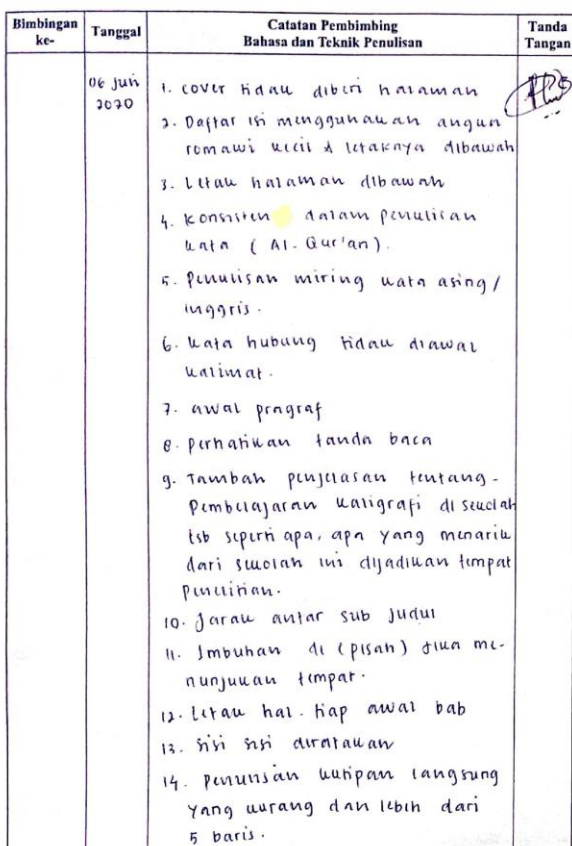 Bimbingan ke-
Tanggal
Catatan Pembimbing
Bahasa dan Teknik Penulisan
Tanda Tangan
06 Juni
2020
1. cover tidak diberi halaman
2. Daftar isi menggunakan angka
romawi kecil & letaknya dibawah
3. Letak halaman dibawah
4. Konsisten dalam penulisan
kata (Al-Qur'an).
5. Penulisan miring kata asing/
inggris.
6. kata hubung tidak diawal
kalimat.
7. awal pragraf
8. perhatikan tanda baca
9. Tambah penjelasan tentang -
Pembelajaran kaligrafi di sekolah
tsb seperti apa, apa yang menarik
dari sekolah ini dijadikan tempat
penelitian.
10. Jarak antar sub judul
11. Imbuhan di (pisah) jika me-
nunjukan tempat.
12. Letak hal. tiap awal bab
13. sisi sisi diratakan
14. penulisan kutipan langsung
yang kurang dan lebih dari
5 baris.